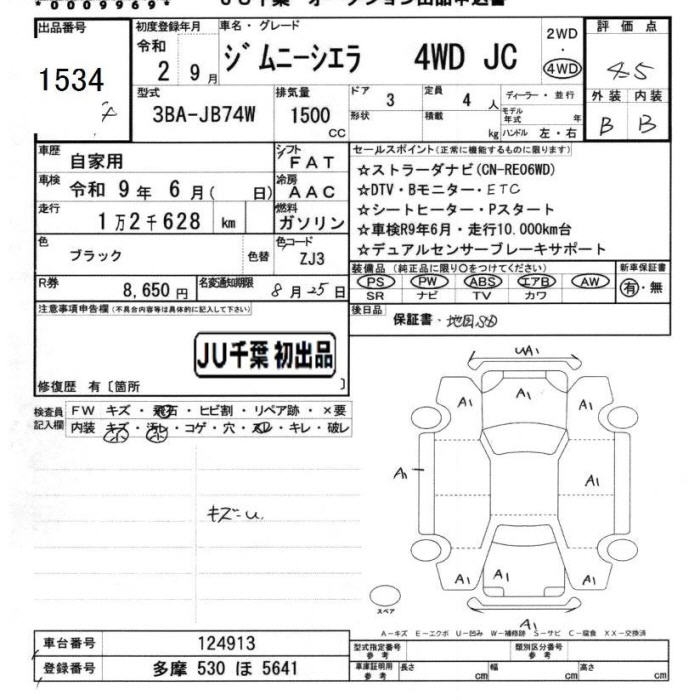 *0009969*
JU千葉 オークション出品申込書
出品番号 初度登録年月 車名・グレード 2WD ・ 4WD 評価点
1534 令和 2 9月 ジムニーシエラ 4WD JC 4.5
型式 3BA-JB74W 排気量 1500 CC
ドア 3 定員 4 人 ディーラー・並行 外装 内装
形状 積載 kg モデル年式 年 ハンドル 左・右 B B
車歴 自家用 シフト FAT
車検 令和 9 年 6 月( 日) 冷房 AAC
走行 1万2千628 km 燃料 ガソリン
色 ブラック 色替 色コード ZJ3
R券 8,650円 名変通知期限 8月25日
セールスポイント(正常に機能するものに限ります)
☆ストラーダナビ(CN-RE06WD)
☆DTV・Bモニター・ETC
☆シートヒーター・Pスタート
☆車検R9年6月・走行10.000km台
☆デュアルセンサーブレーキサポート
装備品 (純正品に限り○をつけてください) 新車保証書
PS PW ABS エアB AW 有・無
SR ナビ TV カワ
後日品 保証書・地図SD
注意事項申告欄(不具合内容等は具体的に記入して下さい)
JU千葉 初出品
修復歴 有〔箇所 〕
検査員記入欄 FW キズ・飛石・ヒビ割・リペア跡・×要
内装 キズ・汚レ・コゲ・穴・スレ・キレ・破レ
小 小
キズ-u.
UA1
A1 A1 A1
A1 A1
A1 A1 A1
A1
スペア
A-キズ E-エクボ U-凹み W-補修跡 S-サビ C-腐食 XX-交換済
車台番号 124913
登録番号 多摩 530 ほ 5641
型式指定番号 参考 類別区分番号 参考
車庫証明用 参考 長さ cm 幅 cm 高さ cm